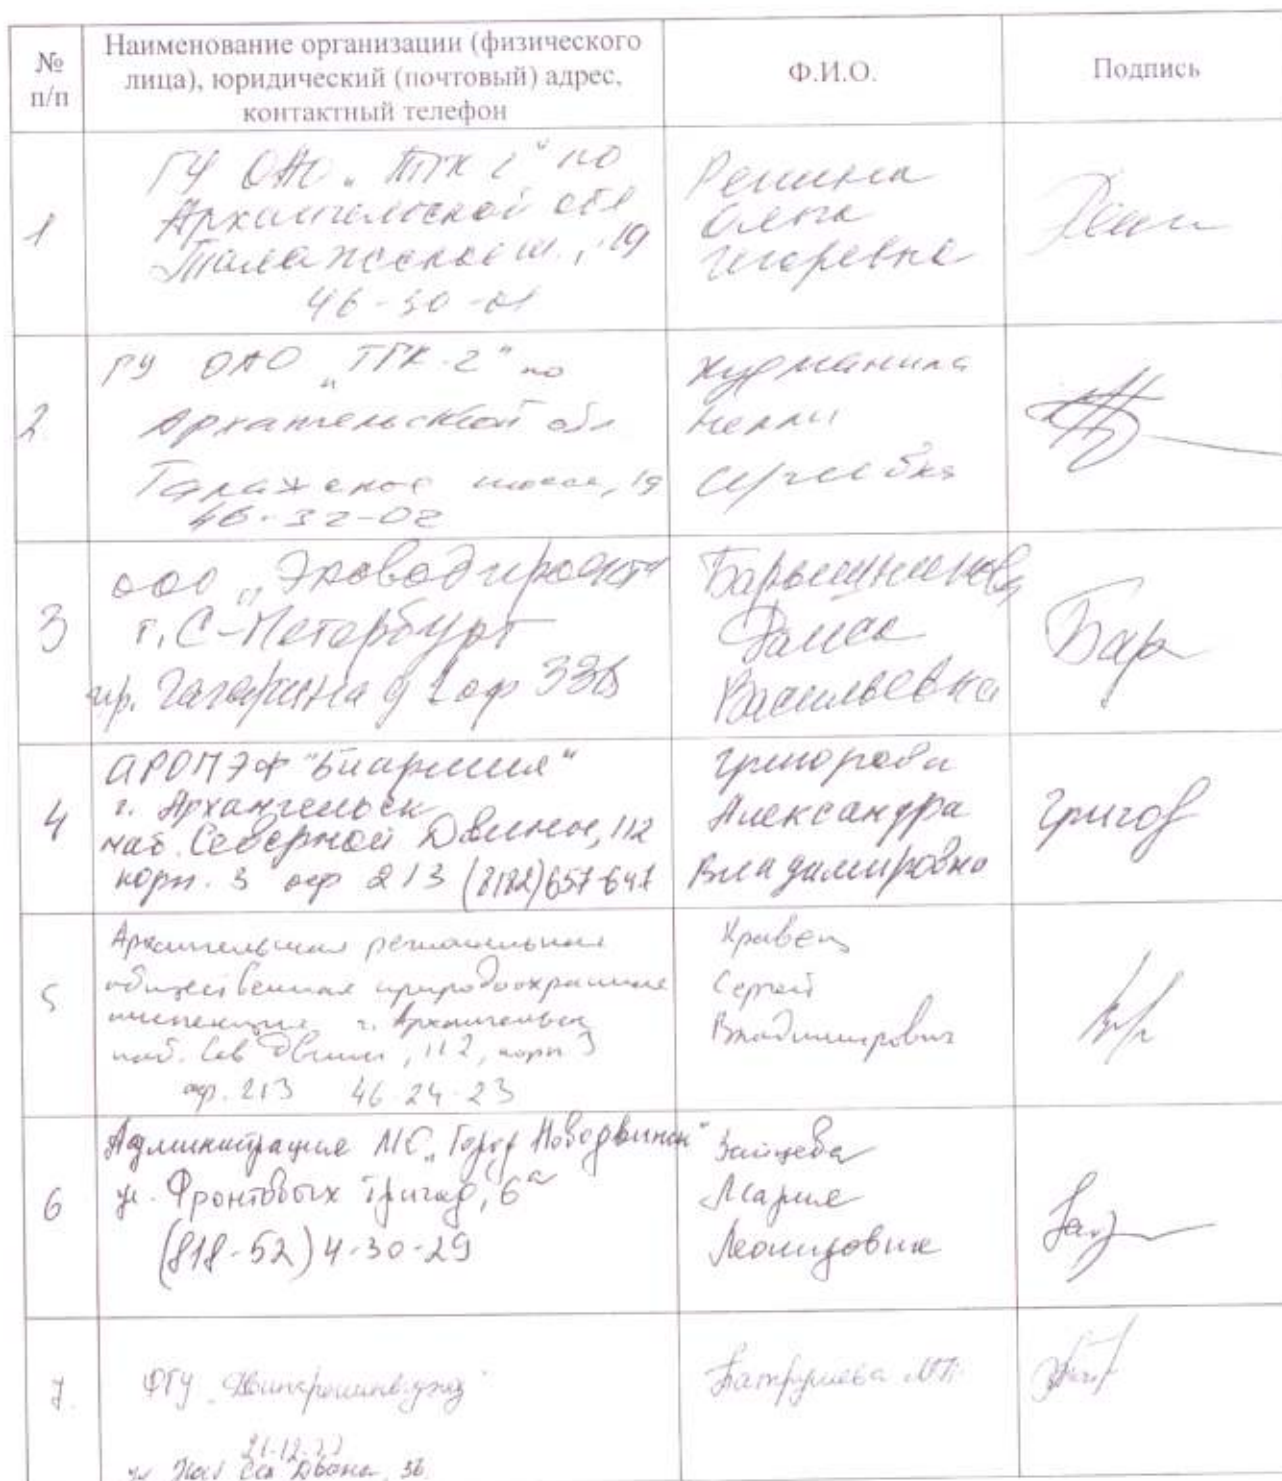 №
п/п
Наименование организации (физического
лица), юридический (почтовый) адрес,
контактный телефон
Ф.И.О.
Подпись
1
ГУ ОАО „ТГК 2" по
Архангельской обл
Талажское ш., 19
46-30-01
Ольга
Игоревна
2.
ГУ ОАО „ТГК-2" по
Архангельской обл.
Талажское шоссе, 19
46-32-02
Нелли
Сергеевна
3
ООО „Эководпроект"
г. С-Петербург
пр. Гагарина д 1 оф 33
Барышникова
Раиса
Васильевна
Бар
4
АРОПЭФ "Биармия"
г. Архангельск
наб. Северной Двины, 112
корп. 3 оф 213 (8182)657-647
Григорова
Александра
Владимировна
Григов
5
Архангельская региональная
общественная природоохранная
инспекция г. Архангельск
наб. Сев Двины, 112, корп 3
оф. 213 46-24-23
Кравец
Сергей
Владимирович
6
Администрация МО „Город Новодвинск"
ул. Фронтовых бригад, 6а
(818-52) 4-30-29
Зайцева
Мария
Леонидовна
7.
ФГУ „Двинрегионводхоз"
21-12-77
Наб Сев Двины, 36